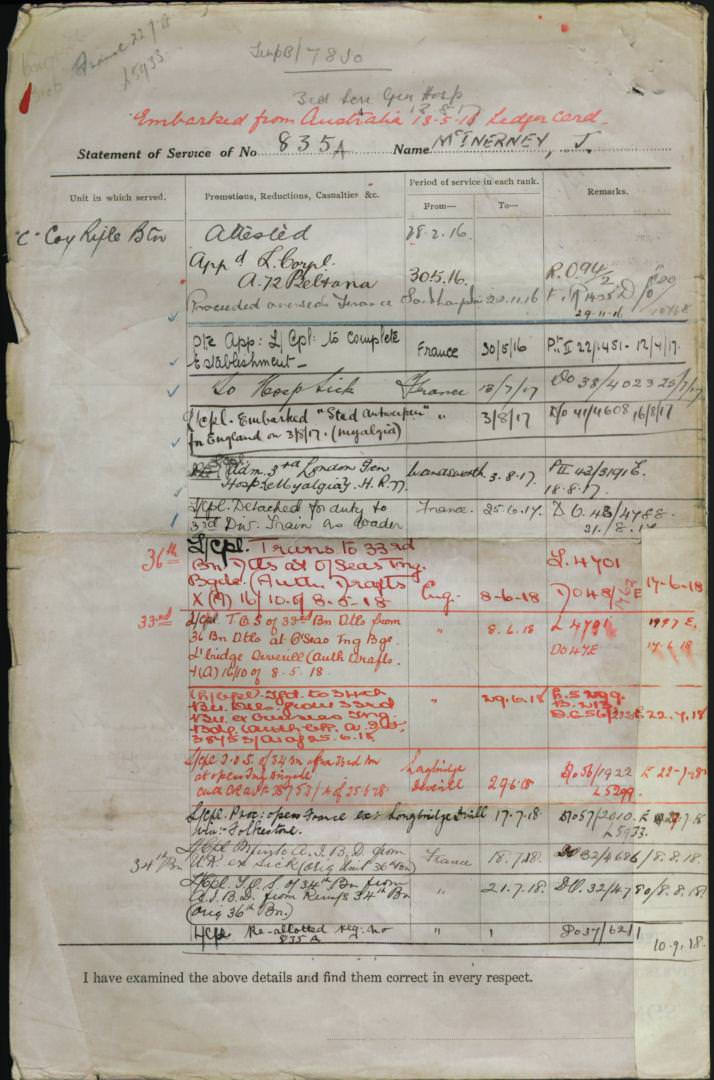 France 22.7.18
L5933
3rd Lon Gen Hosp
13.8.17
Embarked from Australia 13-5-16 Ledger card.
Statement of Service of No 835A Name McINERNEY, J.
Unit in which served. Promotions, Reductions, Casualties &c. Period of service in each rank. Remarks.
From— To—
"C" Coy Rifle Btn Attested 28.2.16.
Appd L. Corpl. 30.5.16. R.094/2
A.72 Beltana
Proceeded overseas France Southampton 22.11.16
29-11-16
Pte App: L/Cpl: to complete France 30/5/16 Pt II 22/1451- 12/4/17.
Establishment—
To Hosp Sick France 13/7/17 DO 38/4023 25/7/17
L/Cpl. Embarked "Stad Antwerpen" " 3/8/17 D/o 41/4608 16/8/17
for England on 3/8/17. (myalgia)
L/Cpl. Adm. 3rd London Gen Wandsworth 3.8.17. Pt II 43/3191 E.
Hosp. Myalgia 18.8.17.
L/Cpl. Detached for duty to France. 25.6.17. D.O. 43/4788
3rd Div. Train as loader 21./8.17
36th L/Cpl. Trans to 33rd L. 4701
Bn Dtls at O/Seas Tng.
Bgde. (Auth Drafts Eng. 8-6-18 DO48/ E 17-6-18
X(A) 16/10 of 8-5-18
33rd L/Cpl T.O.S of 33rd Bn Dtls from " 8.6.18 L 4701 1997 E,
36 Bn Dtls at O'Seas Tng Bge. DO 47E 17.6.18
L'bridge Deverill (Auth Drafts.
X(A) 16/10 of 8.5.18.
(L/Cpl) Tfd. to 34th " 29.6.18 L.5299.
Bn. Dtls. from 33rd
Bn. ex Overseas Tng. D.O. 56/ E 22.7.18
Bde (Auth
38753/ of 25.6.18
L/Cpl T.O.S. of 34 Bn from 33rd Bn Longbridge
at o/seas Tng Brigade Deverill 29.6.18 D/o 56/1922 E 22-7-18
38753/ of 25-6-18 L5299.
L/Cpl. Proc: o/seas France ex: Longbridge Devrill 17.7.18 D/o57/2010. E 7.18
via:- Folkestone. L5933.
L/Cpl M/into A.I.B.D. from France 18.7.18. DO 32/4686/8.8.18.
34th Bn U.K. ex Sick (Orig Unit 36th Bn)
L/Cpl. T.O.S of 34th Bn from " 21.7.18. D.O. 32/4780/8.8.18.
A.I.B.D. from Reinfs 34th Bn
(Orig 36th Bn.)
L/Cpl Re-allotted reg. no " 8037/6211
835A 10.9.18.
I have examined the above details and find them correct in every respect.